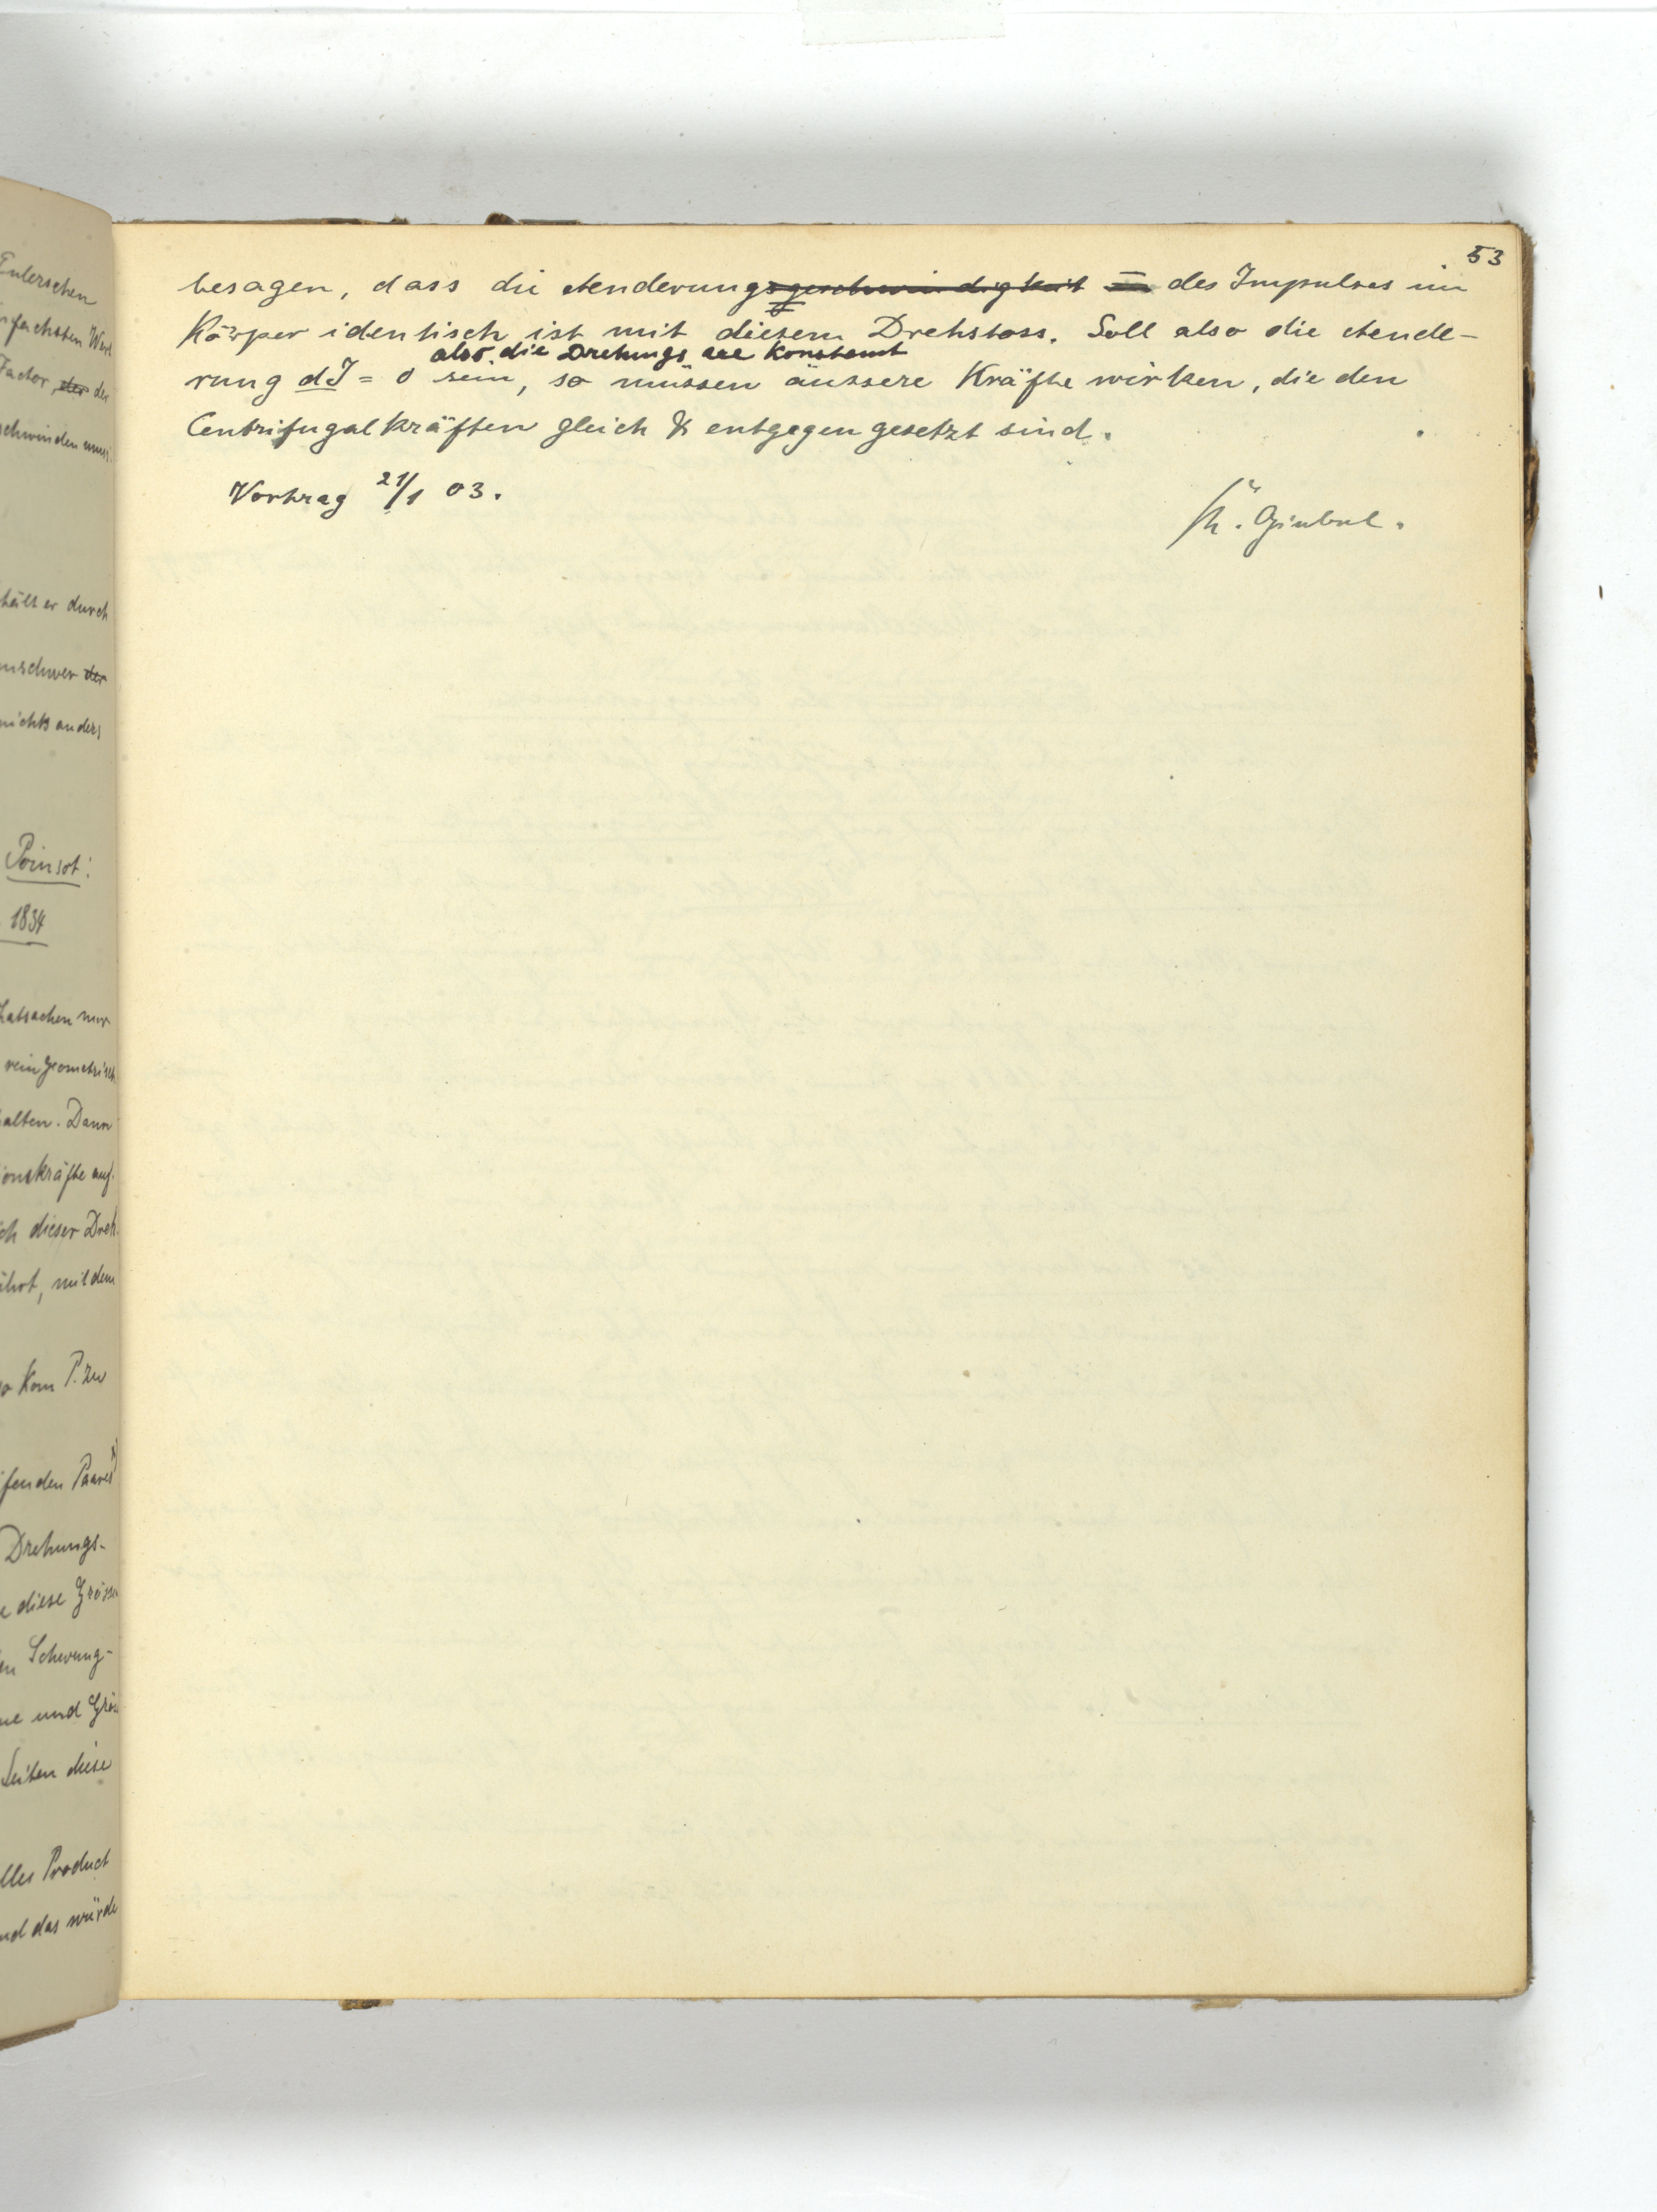 Eulerschen
fachsten Wert
Factor der der
schwinden muss.
hält er durch
unschwer der
nichts anders
Poinsot:
1834
Thatsachen nur
rein geometrisch
halten. Dann
ionskräfte auf-
ch dieser Dreh-
ührt, mit dem
so kam P. zu
fenden Paares
Drehungs-
e diese Grösse
en Schwung-
ne und Grös
Seiten diese
lles Product
und das würde
53
besagen, dass die Aenderungsgeschwindigkeit des Impulses im
Körper identisch ist mit diesem Drehstoss. Soll also die Aende-
also die Drehungsaxe konstant
rung dJ = 0 sein, so müssen äussere Kräfte wirken, die den
Centrifugalkräften gleich & entgegengesetzt sind.
Vortrag 21/1 03.